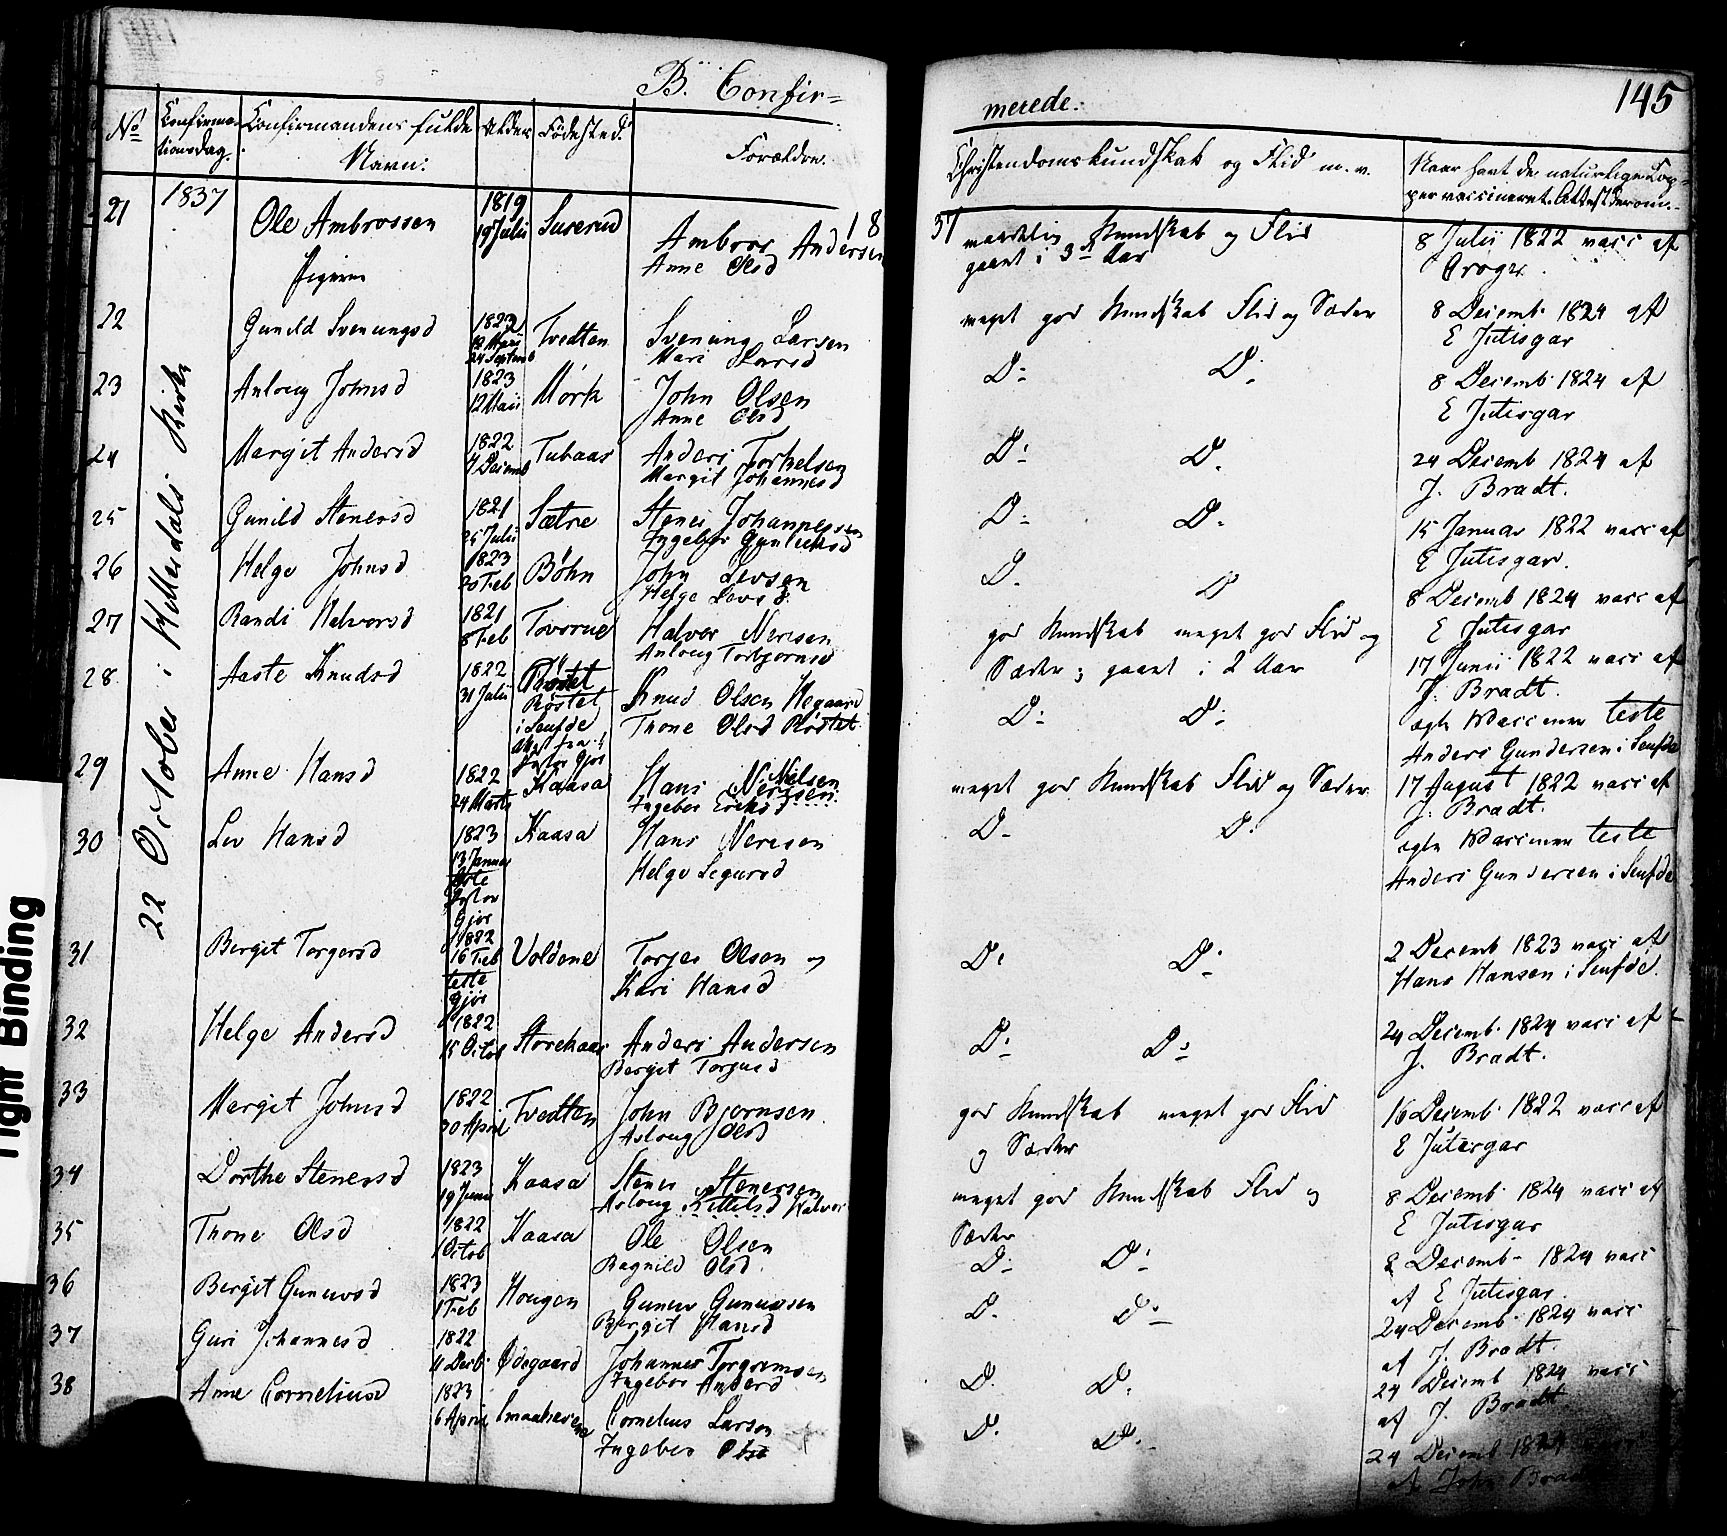 B. Confir=
merede:
145
No
Confirma-
tionsdag.
Confirmandens fulde
Navn:
Alder
Fødested.
Forældre.
Christendomskundskab og Flid m. v.
Naar havt de naturlige Kop-
per vaccineret. Attest derom.
1837
22 October i Hitterdals Kirke
18
37
21 Ole Ambrossen 1819 19 Julii Suserud Ambros Andersen
Anne Olsd
Pigerne
Kundskab og Flid
gaaet i 3de Aar
8 Julii 1822 vacc af
22 Gunild Svenungsd 1823 Tvedten Svenung Larsen
24 Septemb
Mari
meget god Kundskab Flid og Sæder
8 Decemb 1824 af
E Jutisgar
23 Anlaug Johnsd 1823 12 Maii Mørk John Olsen
Anne Olsd
D: D:
8 Decemb 1824 af
E Jutisgar
24 Margit Andersd 1822 4 Decemb Tubaas Anders Torkelsen
Margit Johannesd
D: D.
24 Decemb 1824 af
J. Bradt.
25 Gunild Stenersd 1821 25 Julii Sætre Stener Johannessen
Ingebor Gunleksd
D: D.
15 Januar 1822 vacc af
E Jutisgar.
26 Helge Johnsd 1823 20 Feb Bøhn John Levsen
Helge Levsd
D. D
8 Decemb 1824 vacc af
E Jutisgar
27 Randi Halvorsd 1821 8 Feb Tovrue Halvor Neresen
Anlaug Torbjørnsd
god Kundskab meget god Flid og
Sæder; gaaet i 2 Aar
17 Junii 1822 vacc af
J. Bradt.
28 Aaste Knudsd 1822 31 Julii Røstet
Røstet
i Seufde
Knud Olsen Hegaard
Thone Olsd Røstet
D: D:
ægte Vaccinen teste
Anders Gundersen i Seufde
29 Anne Hansd 1822 24 Marts Kaasa Hans Nielsen
Neresen
Ingebor Eriksd
meget god Kundskab Flid og Sæder
17 August 1822 vacc af
J. Bradt.
30 Lev Hansd 1823 13 Januar Kaasa Hans Neresen
teste
Pastor
Gjør
Helge Segursd
D- D:
ægte Vaccinen teste
Anders Gundersen i Seufde
31 Bergit Torgersd 1822 16 Feb Voldene Torger Olsen og
teste
Gjør
Kari Hansd
D: D:
2 Decemb 1823 vacc af
Hans Hansen i Seufde.
32 Helge Andersd 1822 15 Octob Storekaas Anders Andersen
Bergit Torgersd
D: D:
24 Decemb 1824 vacc af
J. Bradt.
33 Margit Johnsd 1822 30 April Tvedten John Bjørnsen
Aslaug Olsd
god Kundskab meget god Flid
og Sæder
16 Decemb 1822 vacc af
E Jutisgar
34 Dorthe Stenersd 1823 19 Junii Kaasa Stener Stenersen
Aslaug Kittilsd
meget god Kundskab Flid og
Sæder
8 Decemb 1824 vacc af
E Jutisgar
35 Thone Olsd 1822 1 Octob Kaasa Ole Olsen
Ragnild Olsd.
D: D:
8 Decemb- 1824 vacc
af E Jutisgar
36 Bergit Gunersd 1823 1 Feb Hougen Guner Gunersen
Bergit Hansd
D. D:
24 Decemb 1824 vacc
af J. Bradt.
37 Guri Johannesd 1822 11 Decb Ødegaard Johannes Torgrimsen
Ingebor Andersd
D. D.
24 Decemb 1824 vacc
af J. Bradt
38 Anne Corneliusd 1823 6 April Cornelius Larsen
Ingebor Olsd
D. D.
24 Decemb 1824
af John Bradt
Tight Binding